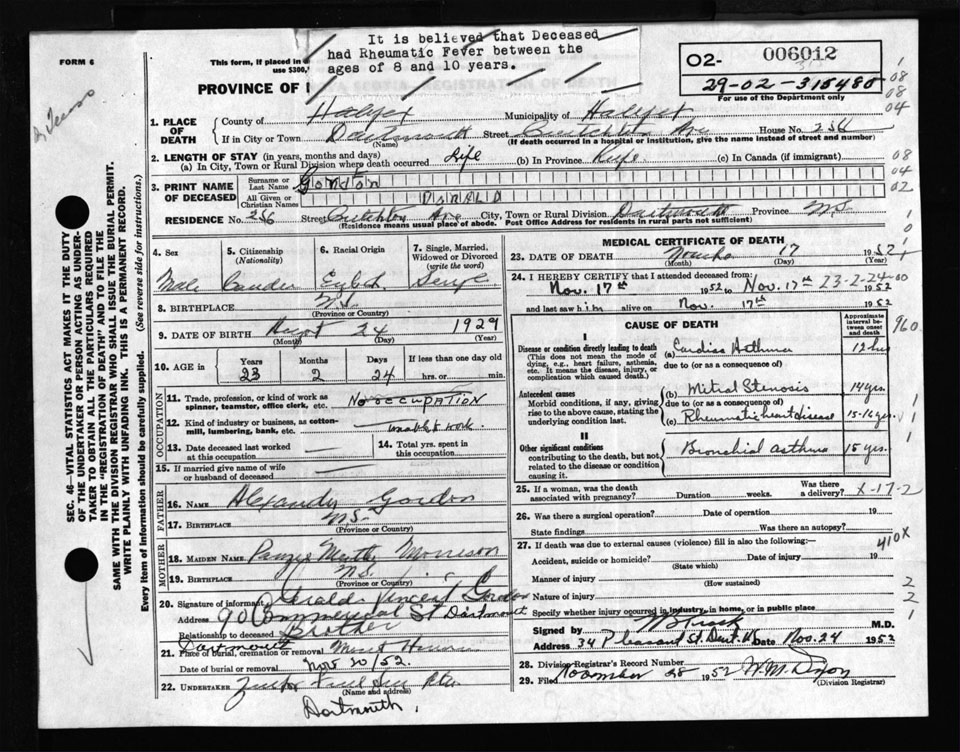 It is believed that Deceased
had Rheumatic Fever between the
ages of 8 and 10 years.
FORM 6
This form, if placed in
use $300,
PROVINCE OF
REGISTRATION OF DEATH
O2- 006012
29-02-315480
For use of the Department only
1. PLACE OF DEATH
County of Halifax Municipality of Halifax
If in City or Town Dartmouth Street Ave House No. 256
(Name) (If death occurred in a hospital or institution, give the name instead of street and number)
2. LENGTH OF STAY (in years, months and days)
(a) In City, Town or Rural Division where death occurred Life (b) In Province Life (c) In Canada (if immigrant)
3. PRINT NAME OF DECEASED
Surname or Last Name GORDON
All Given or Christian Names DONALD
RESIDENCE No. 256 Street Ave City, Town or Rural Division Dartmouth Province N.S.
(Residence means usual place of abode. Post Office Address for residents in rural parts not sufficient)
4. Sex
5. Citizenship (Nationality)
6. Racial Origin
7. Single, Married, Widowed or Divorced (write the word)
Male Single
8. BIRTHPLACE N.S.
(Province or Country)
9. DATE OF BIRTH 24 1929
(Month) (Day) (Year)
10. AGE in Years Months Days If less than one day old
23 2 24 hrs. or min.
OCCUPATION
11. Trade, profession, or kind of work as spinner, teamster, office clerk, etc. NO OCCUPATION
12. Kind of industry or business, as cotton-mill, lumbering, bank, etc. unable to work.
13. Date deceased last worked at this occupation
14. Total yrs. spent in this occupation
15. If married give name of wife or husband of deceased
FATHER
16. NAME Alexander Gordon
17. BIRTHPLACE N.S.
(Province or Country)
MOTHER
18. MAIDEN NAME Morrison
19. BIRTHPLACE N.S.
(Province or Country)
20. Signature of informant Gerald Vincent Gordon
Address 90 Commercial St Dartmouth
Relationship to deceased Brother
Dartmouth
21. Place of burial, cremation or removal Mount Hermon
Date of burial or removal Nov 20/52.
22. UNDERTAKER
(Name and address)
Dartmouth.
SEC. 46—VITAL STATISTICS ACT MAKES IT THE DUTY
OF THE UNDERTAKER OR PERSON ACTING AS UNDER-
TAKER TO OBTAIN ALL THE PARTICULARS REQUIRED
IN THE "REGISTRATION OF DEATH" AND TO FILE THE
SAME WITH THE DIVISION REGISTRAR WHO SHALL ISSUE THE BURIAL PERMIT.
WRITE PLAINLY WITH UNFADING INK. THIS IS A PERMANENT RECORD.
Every item of information should be carefully supplied. (See reverse side for instructions.)
MEDICAL CERTIFICATE OF DEATH
23. DATE OF DEATH 17 1952
(Month) (Day)
24. I HEREBY CERTIFY that I attended deceased from:
Nov. 17th 1952 to Nov. 17th 1952
23-2-24-00
and last saw him alive on Nov. 17th 1952
CAUSE OF DEATH
Approximate interval between onset and death
I
Disease or condition directly leading to death
(This does not mean the mode of dying, e.g., heart failure, asthenia, etc. It means the disease, injury, or complication which caused death.)
(a) Cardiac Asthma 12 hrs
due to (or as a consequence of)
Antecedent causes
Morbid conditions, if any, giving rise to the above cause, stating the underlying condition last.
(b) Mitral Stenosis 14 yrs.
due to (or as a consequence of)
(c) Rheumatic heart disease 15-16 yrs.
II
Other significant conditions contributing to the death, but not related to the disease or condition causing it.
Bronchial asthma 15 yrs.
25. If a woman, was the death associated with pregnancy? Duration weeks. Was there a delivery? X-17-2
26. Was there a surgical operation? Date of operation 19
State findings Was there an autopsy?
27. If death was due to external causes (violence) fill in also the following:—
410X
Accident, suicide or homicide? Date of injury 19
(State which)
Manner of injury
(How sustained)
Nature of injury
Specify whether injury occurred in industry, in home, or in public place
Signed by M.D.
Address 34 Pleasant St. Dart. Date Nov. 24 1952
28. Division Registrar's Record Number
29. Filed November 28 1952
(Division Registrar)